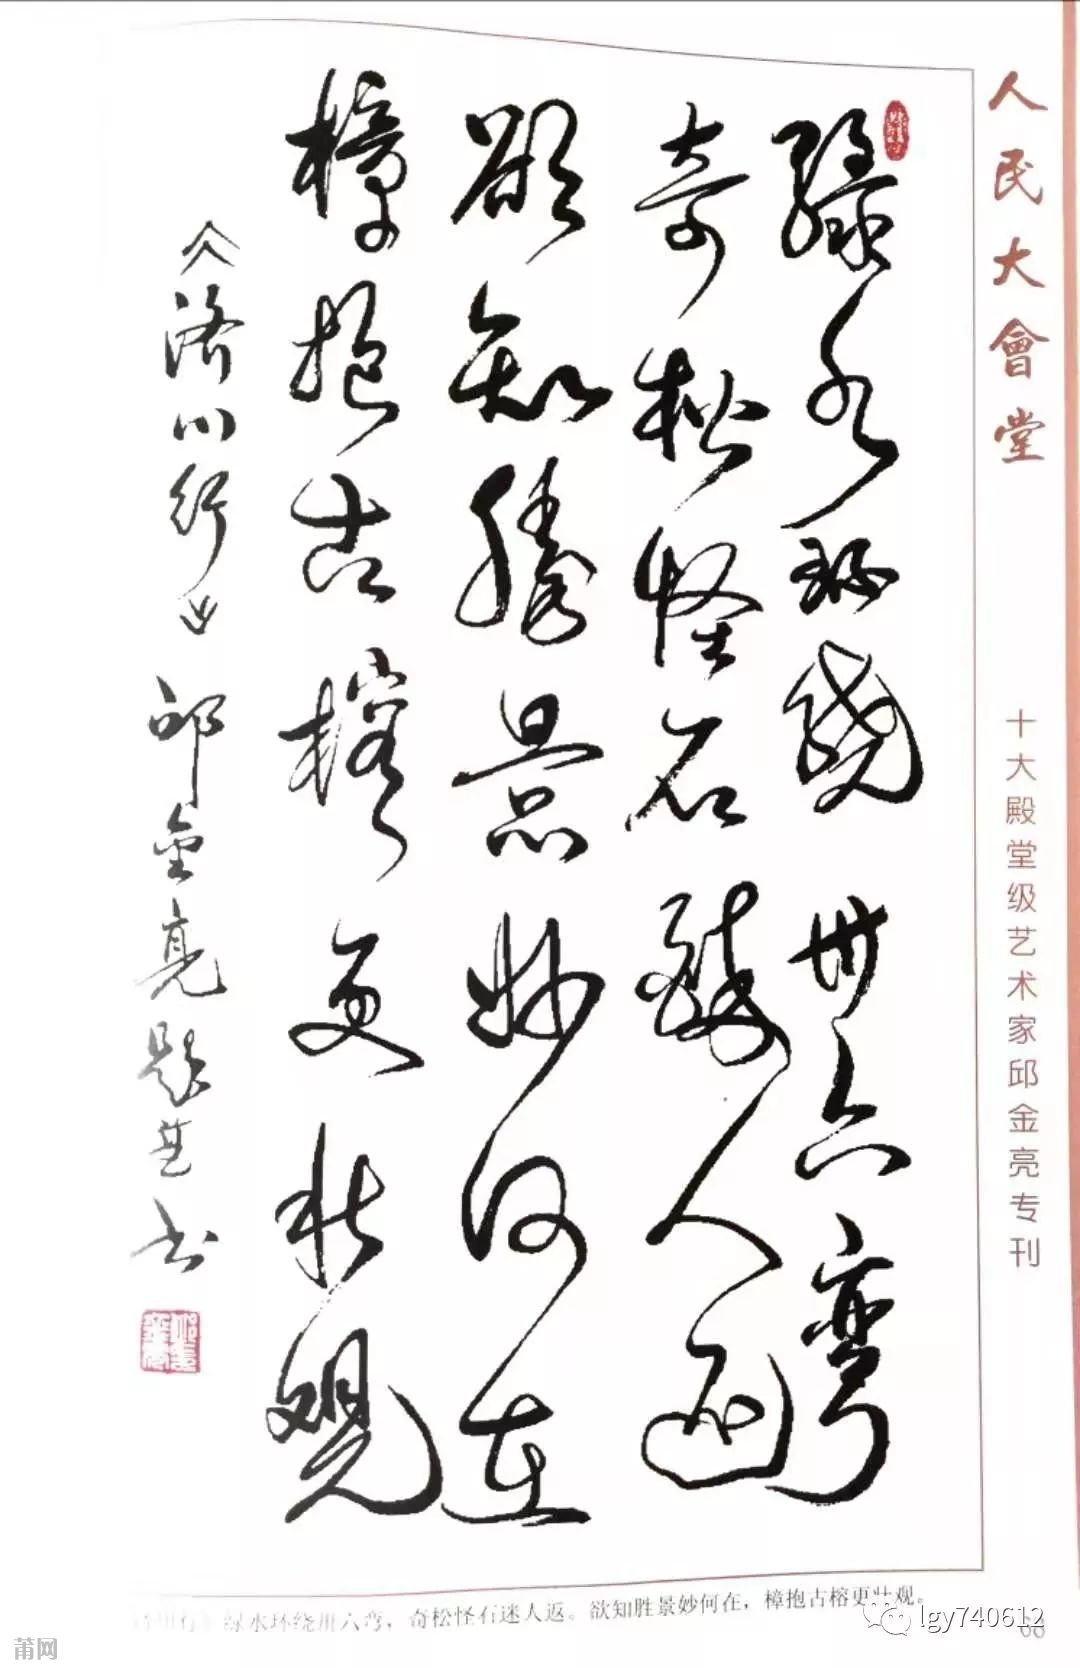 人民大會堂
十大殿堂级艺术家邱金亮专刊
绿水环绕卅六弯
奇松怪石迷人返
欲知勝景妙何在
樟抱古榕更壮观
《济川行》邱金亮题并书
绿水环绕卅六弯，奇松怪石迷人返。欲知胜景妙何在，樟抱古榕更壮观。
lgy740612
68
莆网